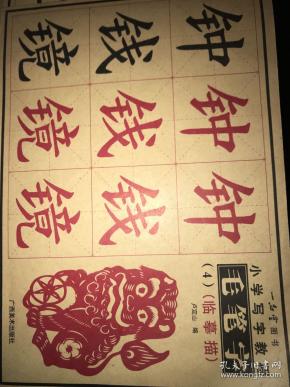 镜 钱 钟
镜 钱 钟
镜 钱 钟
一品堂图书
小学写字教
毛笔字
(4)(临摹描
卢定山 编
广西美术出版社
孔夫子旧书网